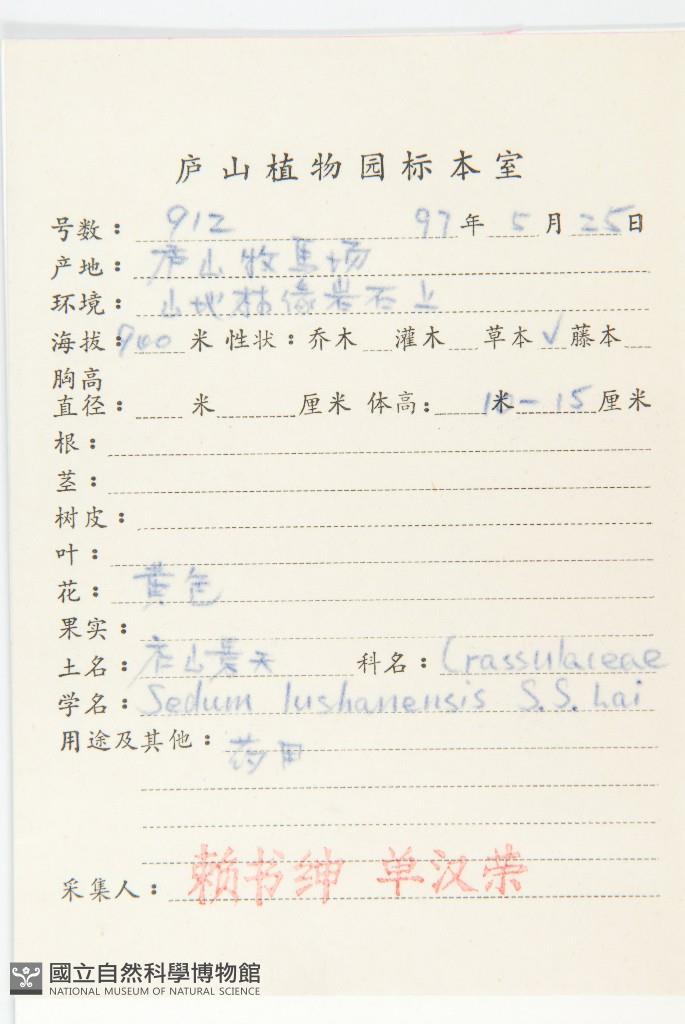 庐山植物园标本室
号数： 912 97年 5月 25日
产地： 庐山牧馬场
环境： 山地林缘岩石上
海拔： 900 米 性状：乔木 灌木 草本 √ 藤本
胸高
直径： 米 厘米 体高： 米 10-15 厘米
根：
茎：
树皮：
叶：
花： 黄色
果实：
土名： 庐山景天 科名： Crassulaceae
学名： Sedum lushanensis S.S. Lai
用途及其他： 药用
采集人： 赖书绅 单汉荣
國立自然科學博物館
NATIONAL MUSEUM OF NATURAL SCIENCE